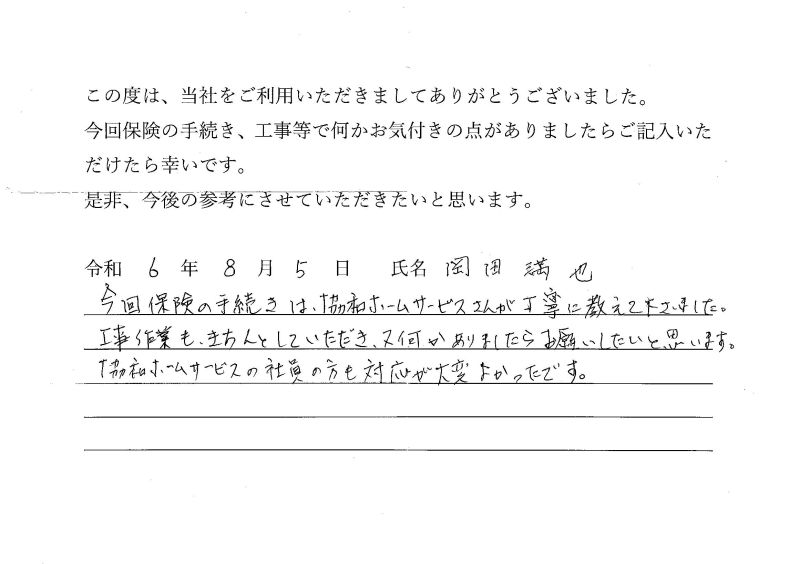 この度は、当社をご利用いただきましてありがとうございました。
今回保険の手続き、工事等で何かお気付きの点がありましたらご記入いた
だけたら幸いです。
是非、今後の参考にさせていただきたいと思います。
令和 6 年 8 月 5 日 氏名 岡田 満也
今回保険の手続きは、協和ホームサービスさんが丁寧に教えて下さいました。
工事作業も、きちんとしていただき、又何かありましたらお願いしたいと思います。
協和ホームサービスの社員の方も対応が大変よかったです。